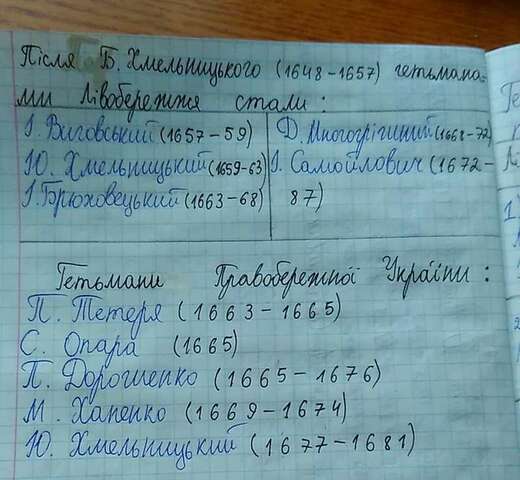 Після Б. Хмельницького (1648-1657) гетьмана-
ми Лівобережжя стали:
І. Виговський (1657-59)
Ю. Хмельницький (1659-63)
І. Брюховецький (1663-68)
Д. Многогрішний (1668-72)
І. Самойлович (1672-
87)
Гетьмани Правобережної України:
П. Тетеря (1663-1665)
С. Опара (1665)
П. Дорошенко (1665-1676)
М. Ханенко (1669-1674)
Ю. Хмельницький (1677-1681)